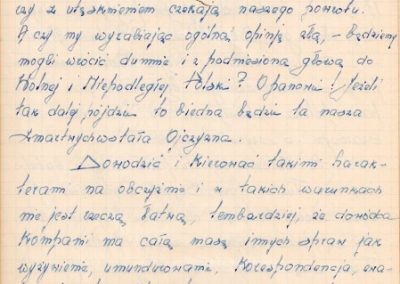 czy z utęsknieniem czekają naszego powrotu.
A czy my wyrabiając ogólną opinję złą, – będziemy
mogli wrócić dumnie i z podniesioną głową do
Wolnej i Niepodległej Polski? O panowie! Jeżeli
tak dalej pójdzie to biedna będzie ta nasza
zmartwychwstała Ojczyzna.
Dowodzić i kierować takimi charak-
terami na obczyźnie i w takich warunkach
nie jest rzeczą łatwą, tembardziej, że dowódca
kompanii ma całą masę innych spraw jak
wyżywienie, umundurowanie, korespondencja, ewa-